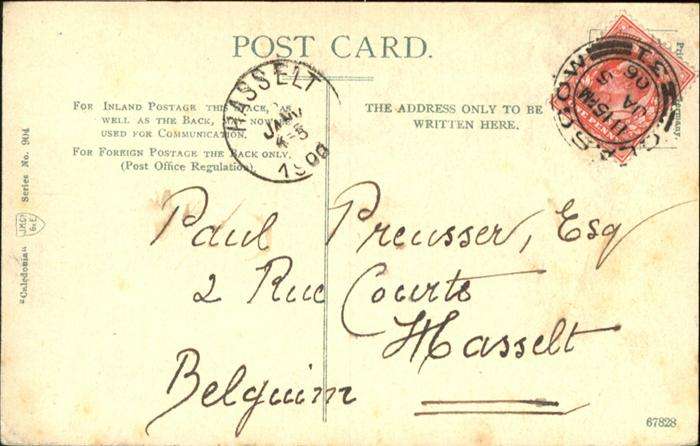 POST CARD.
FOR INLAND POSTAGE THIS SPACE, AS
WELL AS THE BACK, MAY NOW BE
USED FOR COMMUNICATION.
FOR FOREIGN POSTAGE THE BACK ONLY.
(Post Office Regulation).
THE ADDRESS ONLY TO BE
WRITTEN HERE.
HASSELT
JANV
4-5
1906
GLASGOW
11.15PM
JA 5
06
31
Paul Preusser, Esq
2 Rue Courte
Hasselt
Belguim
"Caledonia" Series No. 904
67828